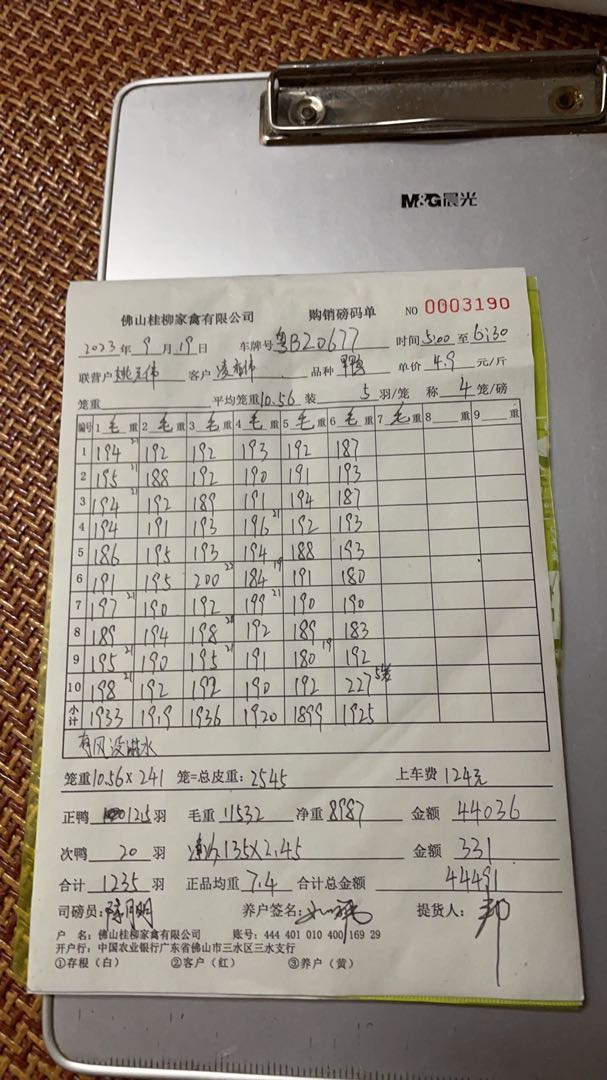 M&G晨光
佛山桂柳家禽有限公司 购销磅码单 NO 0003190
2023年 9月 19日 车牌号 粤B20677 时间 5:00 至 6:30
联营户 客户 品种 单价 4.9 元/斤
笼重 平均笼重 10.56 装 5 羽/笼 称 4 笼/磅
编号 1 毛 重 2 毛 重 3 毛 重 4 毛 重 5 毛 重 6 毛 重 7 毛 重 8 重 9 重
1 194 21 192 192 193 192 187
2 195 21 188 192 190 191 193
3 194 21 192 189 191 194 187
4 194 191 193 196 21 192 193
5 186 195 193 194 188 193
6 191 195 200 22 184 19 191 180
7 197 21 190 192 199 21 190 190
8 189 194 198 20 192 189 183
9 195 21 190 195 21 191 180 19 192
10 198 21 192 192 190 192 227 5笼
小计 1933 1919 1936 1920 1899 1925
有风没淋水
笼重 10.56×241 笼=总皮重: 2545 上车费 124元
正鸭 1215 羽 毛重 11532 净重 8987 金额 44036
次鸭 20 羽 135×2.45 金额 331
合计 1235 羽 正品均重 7.4 合计总金额 44491
司磅员: 养户签名: 提货人:
户 名: 佛山桂柳家禽有限公司 账号: 444 401 010 400 169 29
开户行: 中国农业银行广东省佛山市三水区三水支行
①存根(白) ②客户(红) ③养户(黄)